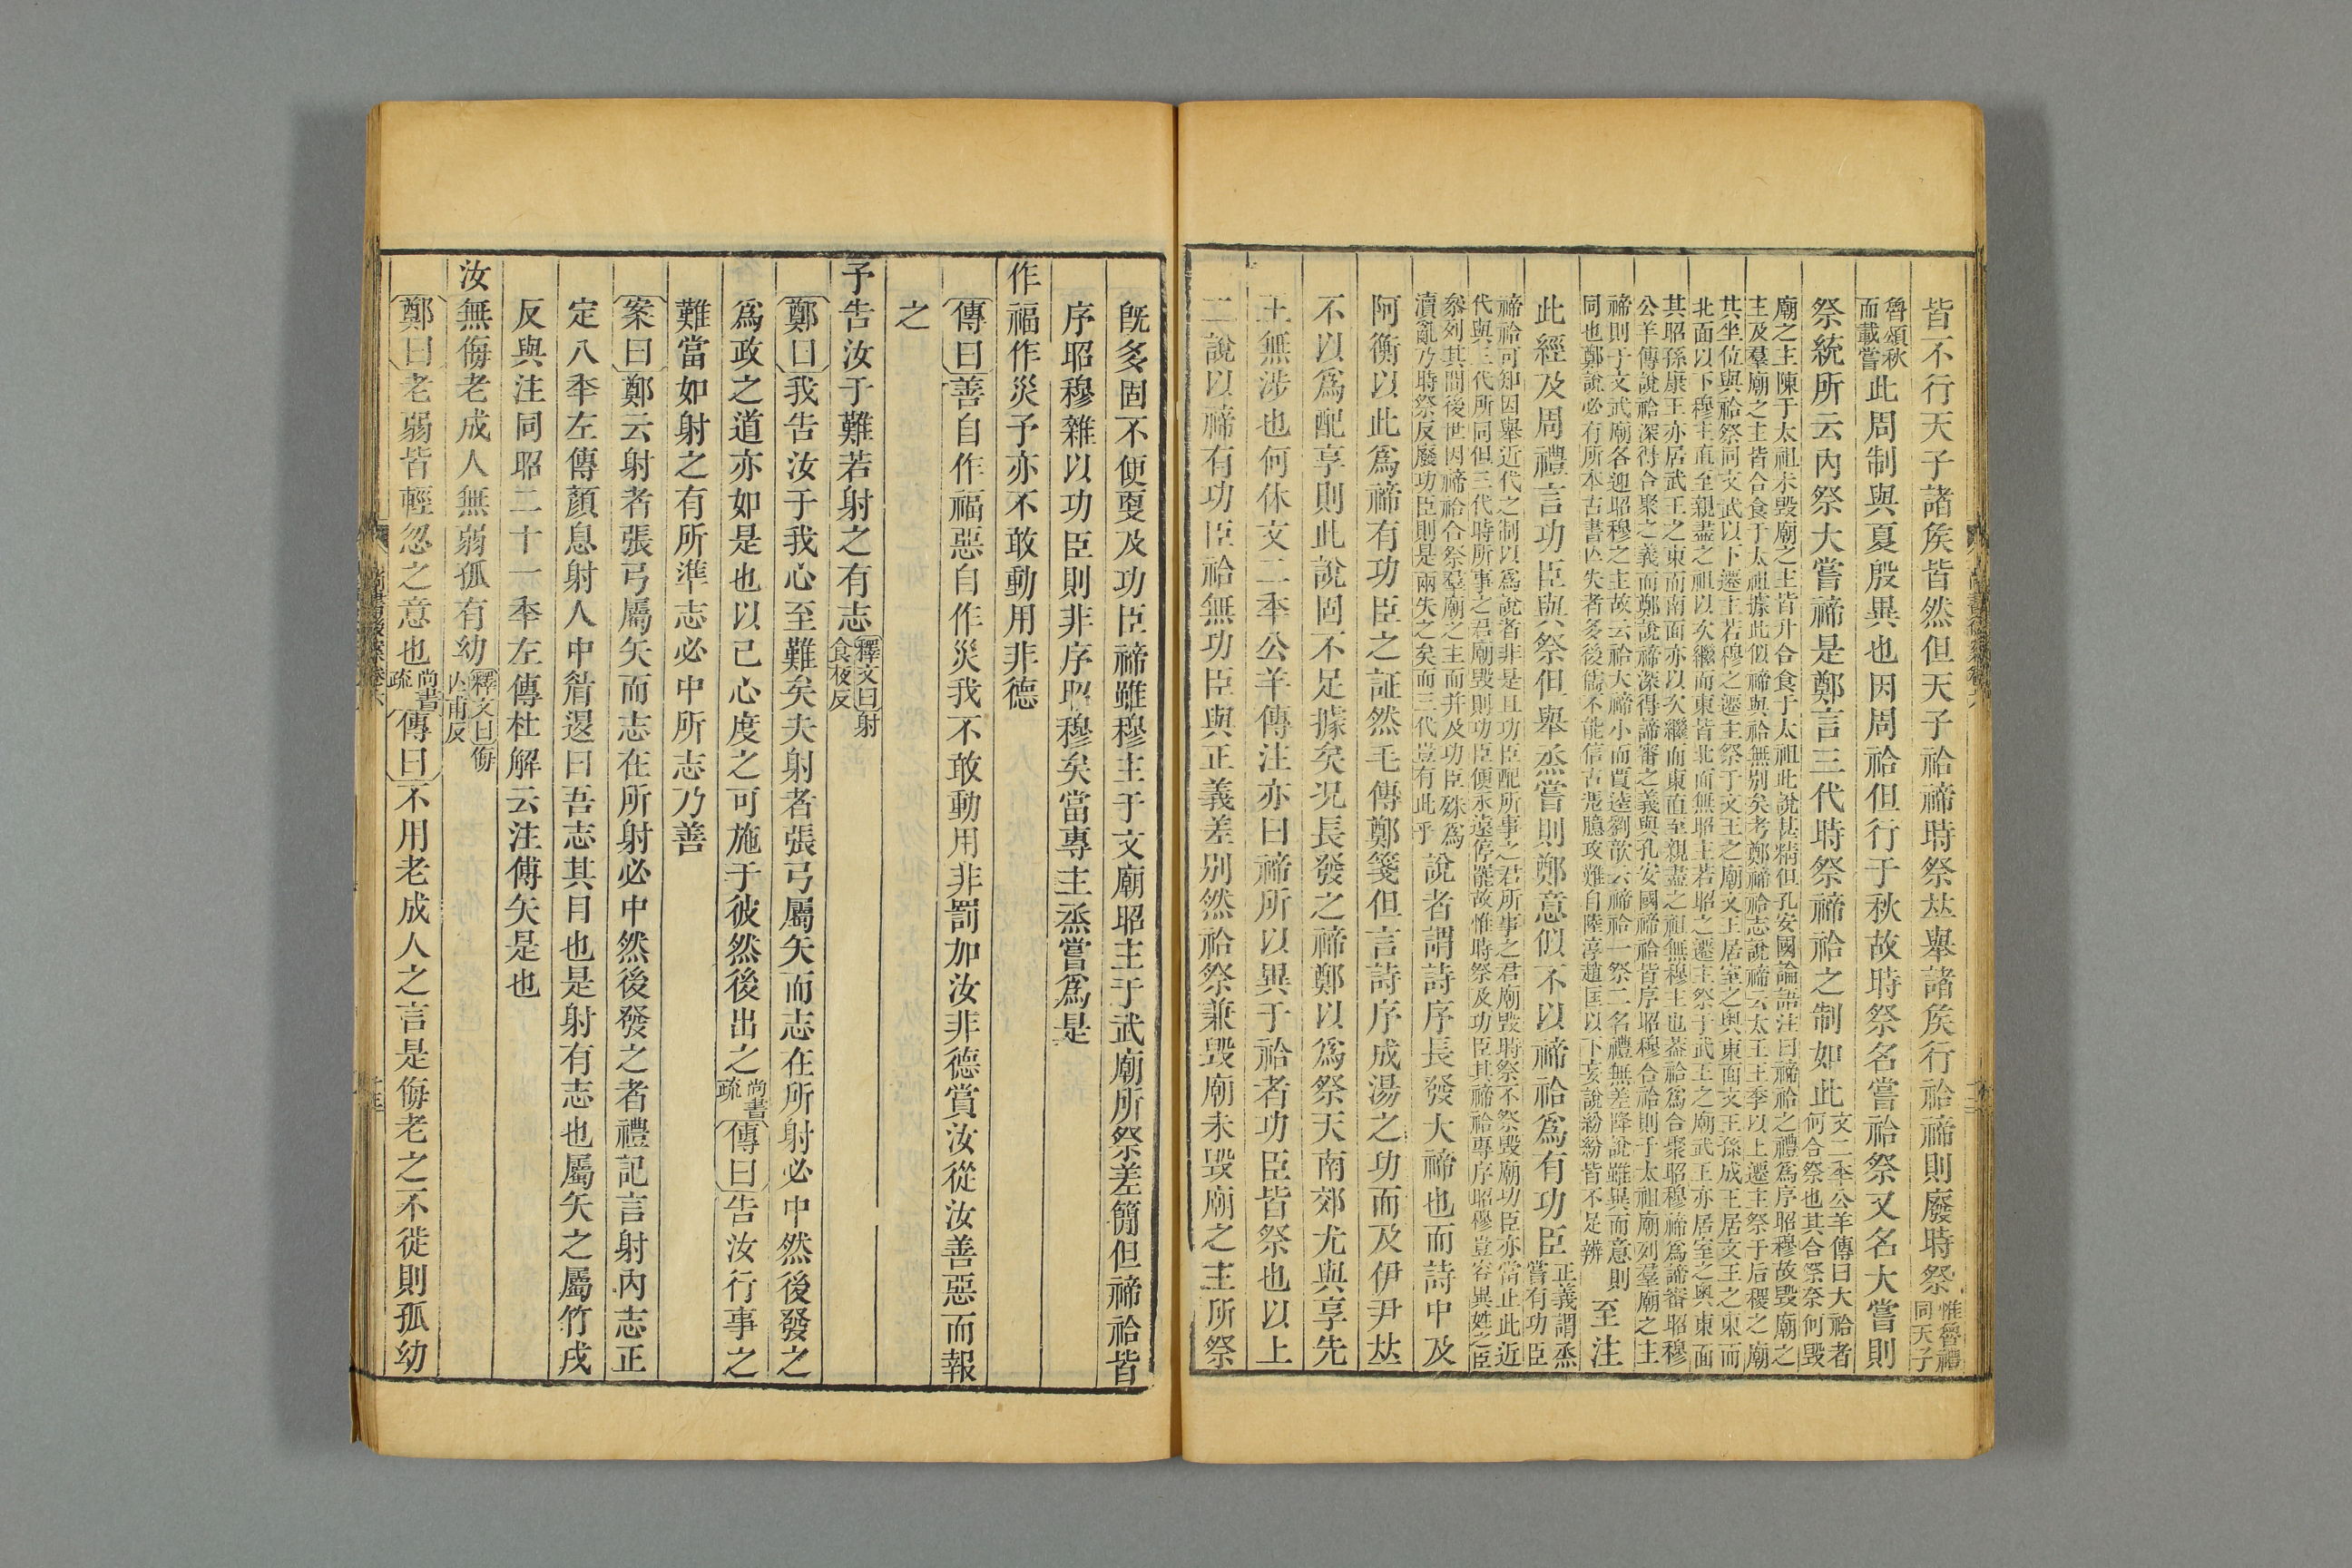 皆不行天子諸矦皆然但天子祫禘時祭竝舉諸矦行祫禘則廢時祭惟魯禮同天子
魯頌秋而載嘗此周制與夏殷異也因周祫但行于秋故時祭名嘗祫祭又名大嘗則
祭統所云內祭大嘗禘是鄭言三代時祭禘祫之制如此文二秊公羊傳曰大祫者何合祭也其合祭奈何毀
廟之主陳于太祖未毀廟之主皆升合食于太祖此說甚精但孔安國論語注曰禘祫之禮爲序昭穆故毀廟之
主及羣廟之主皆合食于太祖據此似禘與祫無別矣考鄭禘祫志說禘云太王王季以上遷主祭于后稷之廟
其坐位與祫祭同文武以下遷主若穆之遷主祭于文王之廟文王居室之奧東面文王孫成王居文王之東而
北面以下穆主直至親盡之祖以次繼而東皆北面無昭主若昭之遷主祭于武王之廟武王亦居室之奧東面
其昭孫康王亦居武王之東而南面亦以次繼而東直至親盡之祖無穆主也葢祫爲合聚昭穆禘爲諦審昭穆
公羊傳說祫深得合聚之義而鄭說禘深得諦審之義與孔安國禘祫皆序昭穆合祫則于太祖廟列羣廟之主
禘則于文武廟各迎昭穆之主故云祫大禘小而賈逵劉歆云禘祫一祭二名禮無差降說雖異而意則
同也鄭說必有所本古書亾失者多後儒不能信古憑臆攻難自陸淳趙匡以下妄說紛紛皆不足辨至注
此經及周禮言功臣與祭但舉烝嘗則鄭意似不以禘祫爲有功臣正義謂烝嘗有功臣
禘祫可知因舉近代之制以爲說者非是且功臣配所事之君所事之君廟毀時祭不祭毀廟功臣亦當止此近
代與三代所同但三代時所事之君廟毀則功臣便永遠停罷故惟時祭及功臣其禘祫專序昭穆豈容異姓之臣
參列其間後世因禘祫合祭羣廟之主而并及功臣殊爲
瀆亂乃時祭反廢功臣則是兩失之矣而三代豈有此乎說者謂詩序長發大禘也而詩中及
阿衡以此爲禘有功臣之証然毛傳鄭箋但言詩序成湯之功而及伊尹竝
不以爲配享則此說固不足據矣況長發之禘鄭以爲祭天南郊尤與享先
王無涉也何休文二秊公羊傳注亦曰禘所以異于祫者功臣皆祭也以上
二說以禘有功臣祫無功臣與正義差別然祫祭兼毀廟未毀廟之主所祭
旣多固不便夏及功臣禘雖穆主于文廟昭主于武廟所祭差簡但禘祫皆
序昭穆雜以功臣則非序昭穆矣當專主烝嘗爲是
作福作災予亦不敢動用非德
傳曰善自作福惡自作災我不敢動用非罰加汝非德賞汝從汝善惡而報
之
予告汝于難若射之有志釋文曰射食夜反
鄭曰我告汝于我心至難矣夫射者張弓屬矢而志在所射必中然後發之
爲政之道亦如是也以己心度之可施于彼然後出之尚書疏傳曰告汝行事之
難當如射之有所準志必中所志乃善
案曰鄭云射者張弓屬矢而志在所射必中然後發之者禮記言射內志正
定八秊左傳顏息射人中眉退曰吾志其目也是射有志也屬矢之屬竹戌
反與注同昭二十一秊左傳杜解云注傅矢是也
汝無侮老成人無弱孤有幼釋文曰侮亾甫反
鄭曰老弱皆輕忽之意也尚書疏傳曰不用老成人之言是侮老之不從則孤幼